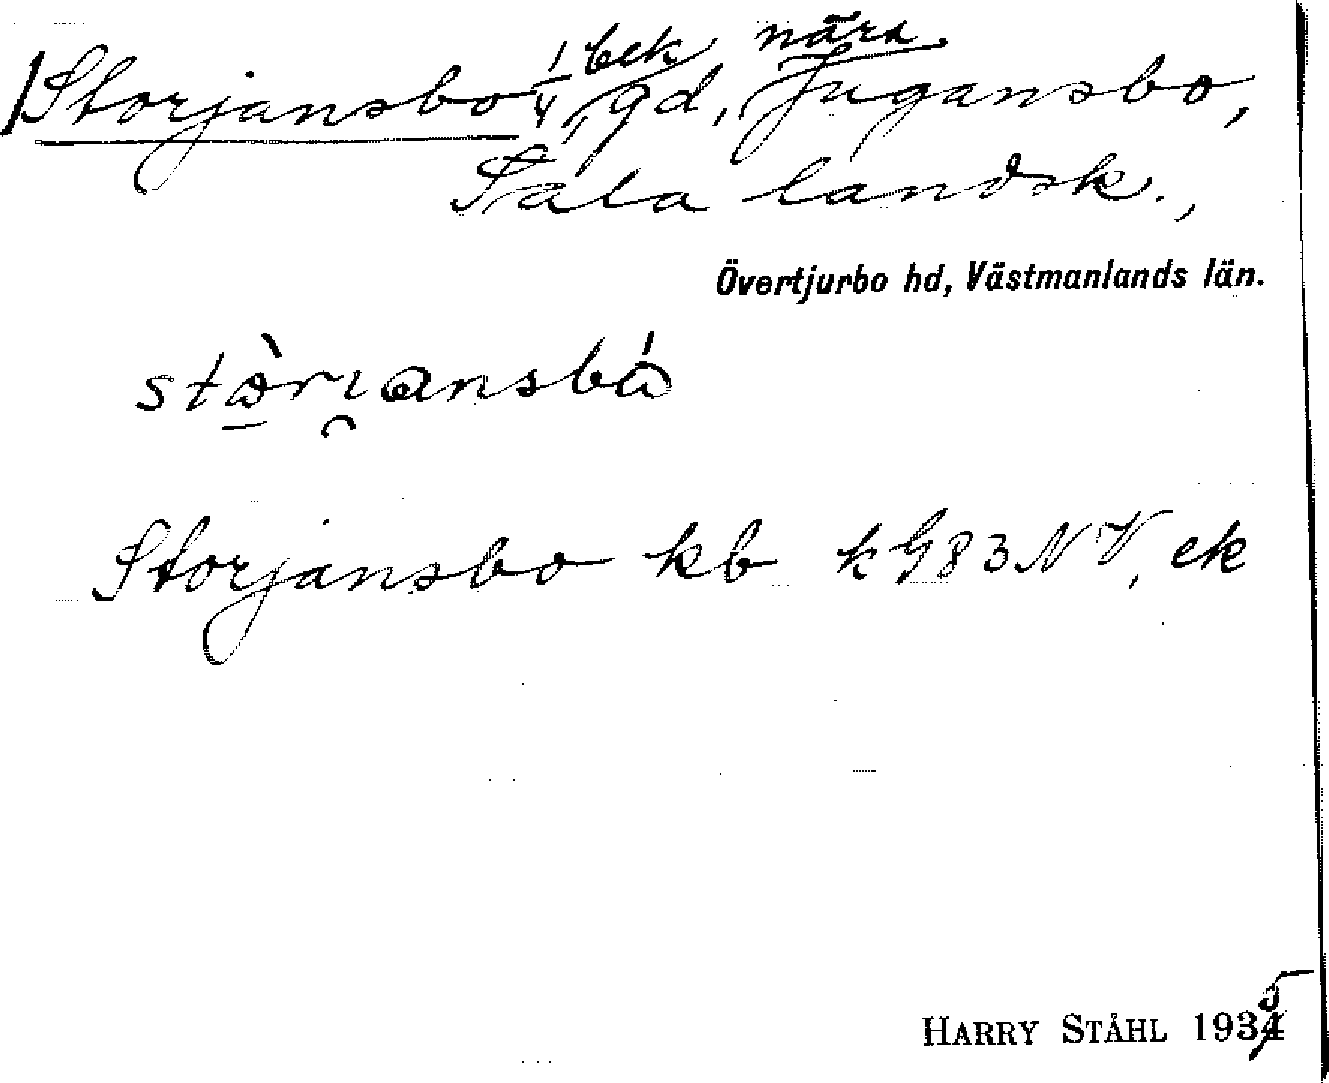 Storjansbo 1/4 bek gd, nära Jugansbo,
Sala landsk.,
Övertjurbo hd, Västmanlands län.
Storjansbo kb k G83NV, ek
HARRY STÅHL 1935